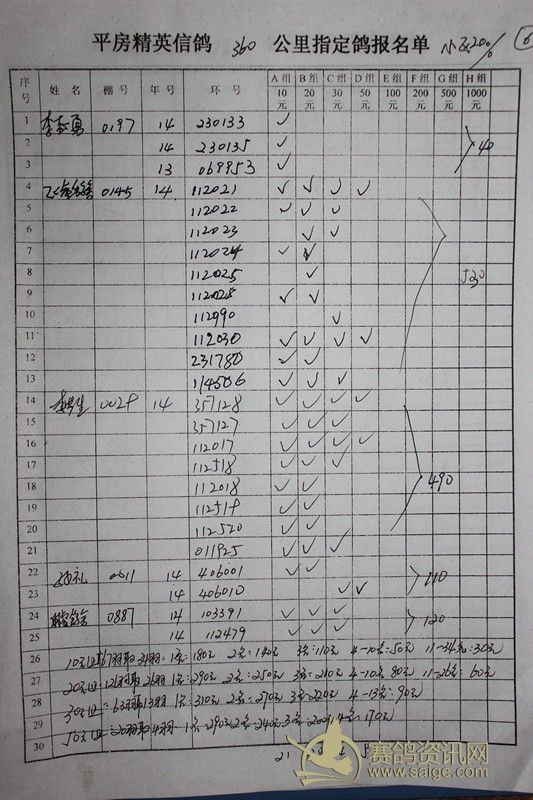 平房精英信鸽 360 公里指定鸽报名单 20% 6
序号 姓名 棚号 年号 环号 A组 10元 B组 20元 C组 30元 D组 50元 E组 100元 F组 200元 G组 500元 H组 1000元
1 0197 14 230133 ✓
2 14 230135 ✓ 40
3 13 069953 ✓
4 0145 14 112021 ✓ ✓ ✓ ✓
5 112022 ✓ ✓ ✓
6 112023 ✓ ✓
7 112024 ✓ ✓
8 112025 ✓ 530
9 112028 ✓ ✓
10 112990 ✓
11 112030 ✓ ✓ ✓ ✓
12 231780 ✓ ✓
13 114506 ✓ ✓ ✓
14 14 357128 ✓ ✓ ✓ ✓
15 357127 ✓ ✓ ✓
16 112017 ✓ ✓ ✓ ✓
17 112518 ✓ ✓ ✓
18 112018 ✓ ✓ 490
19 112519 ✓ ✓
20 112520 ✓ ✓
21 011925 ✓ ✓ ✓
22 0011 14 406001 ✓ ✓ 110
23 14 406010 ✓ ✓
24 0887 14 103391 ✓ ✓ ✓ 120
25 14 112479 ✓ ✓ ✓
26 10元 1名:180元 2名:140元 3名:110元 4-10名:50元 11-34名:30元
27 20元 1名:290元 2名:250元 3名:210元 4-10名 80元 11-26名:60元
28 30元 1名:310元 2名:270元 3名:220元 4-13名:90元
29 50元 1名:290元 2名:240元 3名:200元 4名:170元
30
21
赛鸽资讯网
www.saige.com